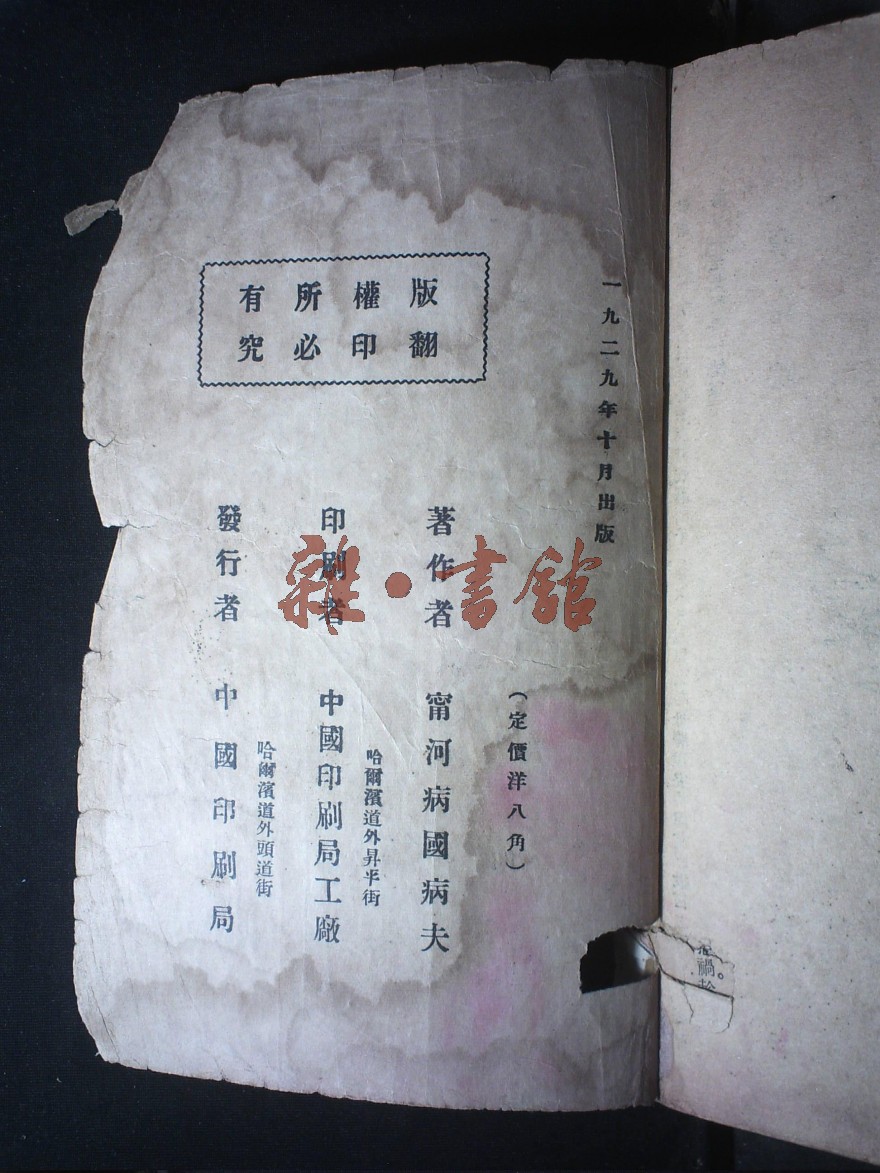 一九二九年十月出版
版權所有
翻印必究
(定價洋八角)
著作者 甯河病國病夫
哈爾濱道外昇平街
印刷者 中國印刷局工廠
哈爾濱道外頭道街
發行者 中國印刷局
雜·書館
禍。